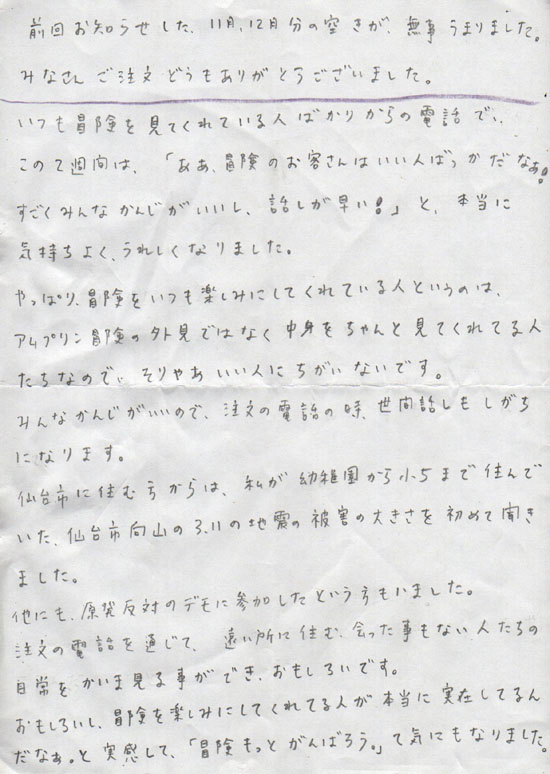 前回お知らせした、11月,12月分の空きが、無事うまりました。
みなさん ご注文 どうもありがとうございました。
いつも冒険を見てくれている人ばかりからの電話で、
この1週間は、「ああ、冒険のお客さんはいい人ばっかだなぁ!
すごくみんなかんじがいいし、話しが早い!」と、本当に
気持ちよく、うれしくなりました。
やっぱり、冒険をいつも楽しみにしてくれている人というのは、
アムプリン冒険の外見ではなく中身をちゃんと見てくれてる人
たちなので、そりゃあいい人にちがいないです。
みんなかんじがいいので、注文の電話の時、世間話しもしがち
になります。
仙台市に住む方からは、私が幼稚園から小5まで住んで
いた、仙台市向山の3.11の地震の被害の大きさを初めて聞き
ました。
他にも、原発反対のデモに参加したという方もいました。
注文の電話を通じて、遠い所に住む、会った事もない人たちの
日常をかいま見る事ができ、おもしろいです。
おもしろいし、冒険を楽しみにしてくれてる人が本当に実在してるん
だなぁ。と実感して、「冒険もっとがんばろう。」て気にもなりました。